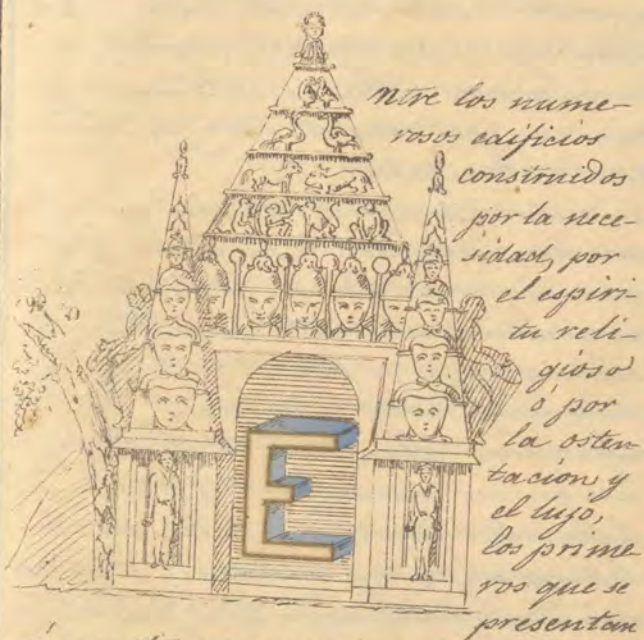 Entre los nume-
rosos edificios
construidos
por la nece-
sidad, por
el espíri-
tu reli-
gioso
ó por
la osten
tacion y
el lujo,
los prime
ros que se
presentan